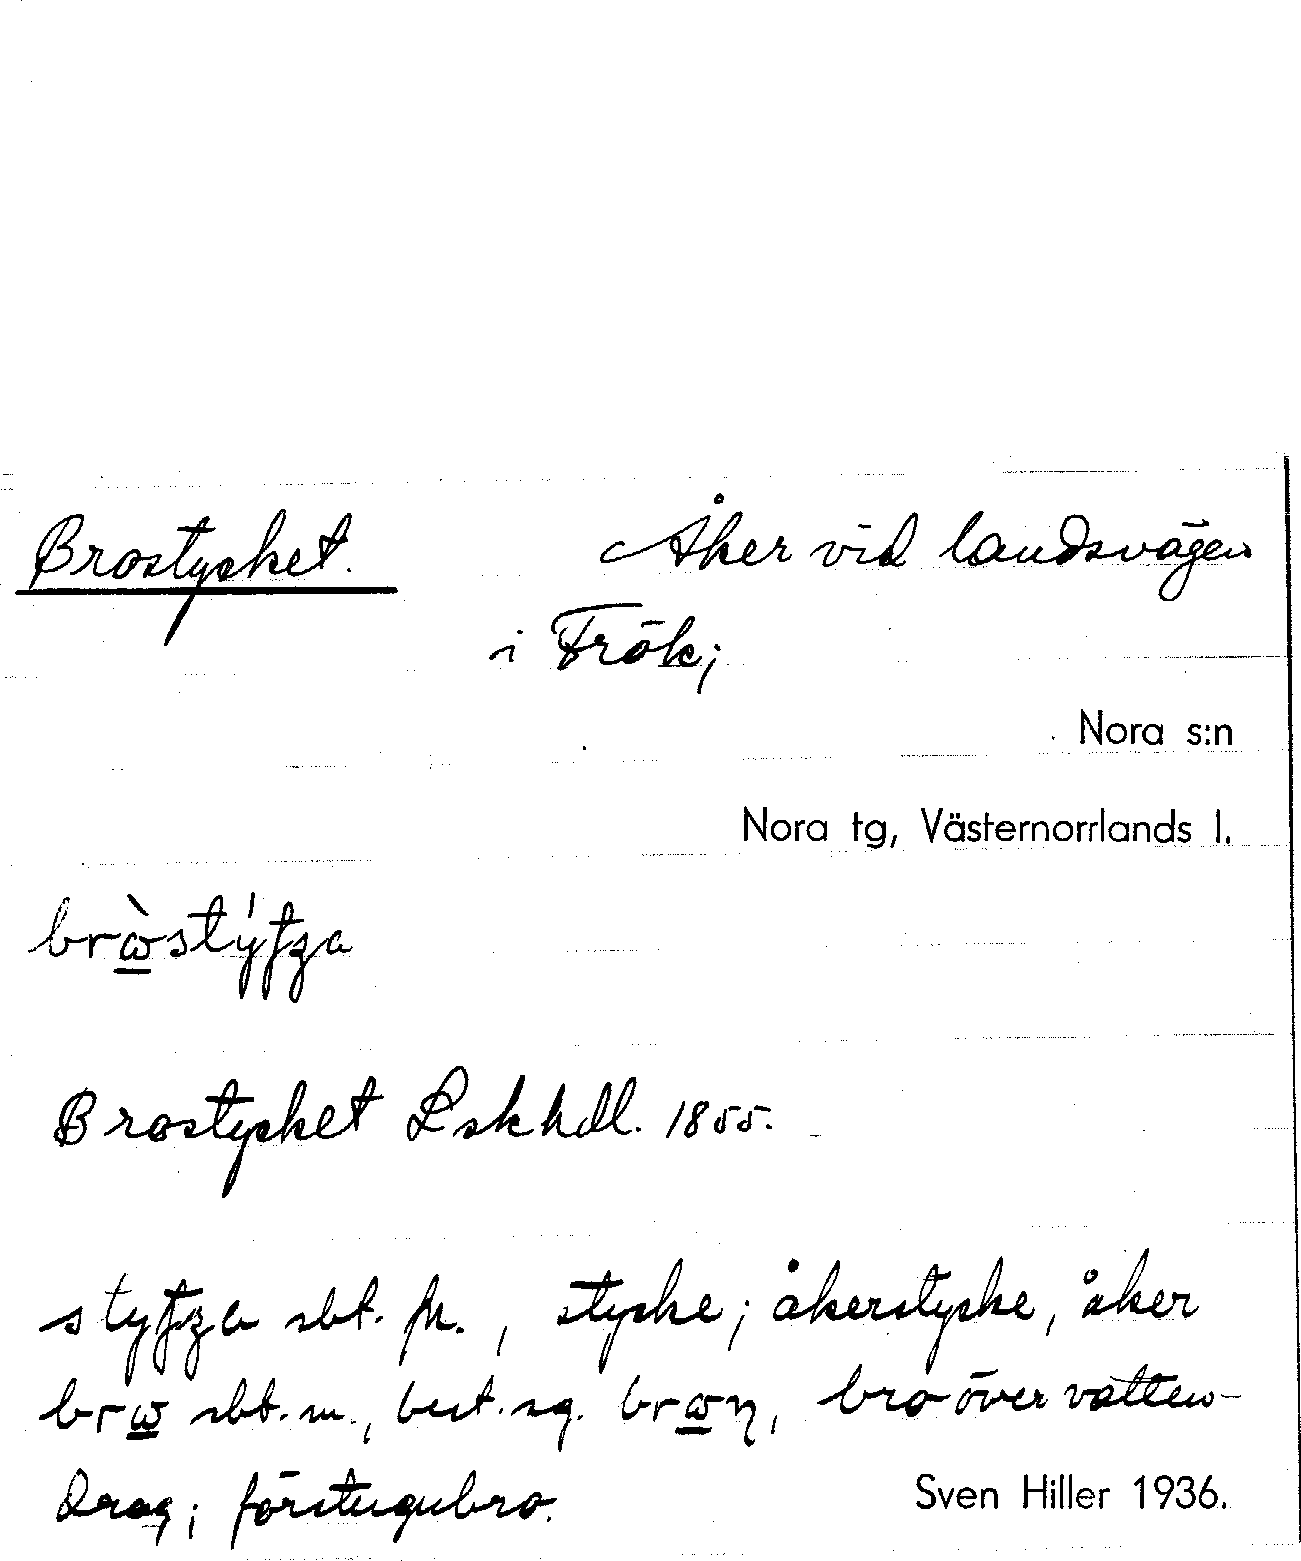 Brostycket. Åker vid landsvägen
i Frök;
Nora s:n
Nora tg, Västernorrlands l.
Brostycket Lskhdl. 1855.
sbt. , stycke; åkerstycke, åker
sbt. m., best. sg. bro över vatten-
drag; förstugubro.
Sven Hiller 1936.